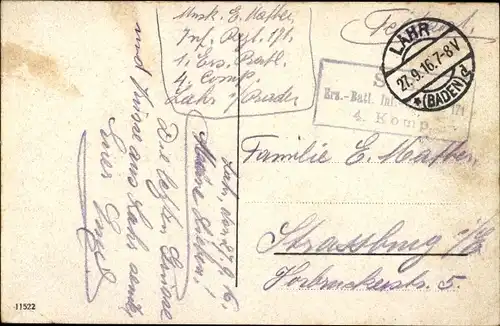 Musk. E. Matter
Inf. Regt. 171.
1. Ers. Batl.
4. Comp.
Lahr i/Baden
Feldpost.
LAHR
27.9.16.7-8V
*(BADEN)d
S
Ers.-Batl. Inf.
4. Komp.
Familie E. Matter
Strassburg i/E
Vorbruckerstr. 5.
Lahr, den 27.9.16.
Meine Lieben!
Die besten Grüsse
und Küsse aus Lahr sendet
Euer
11522